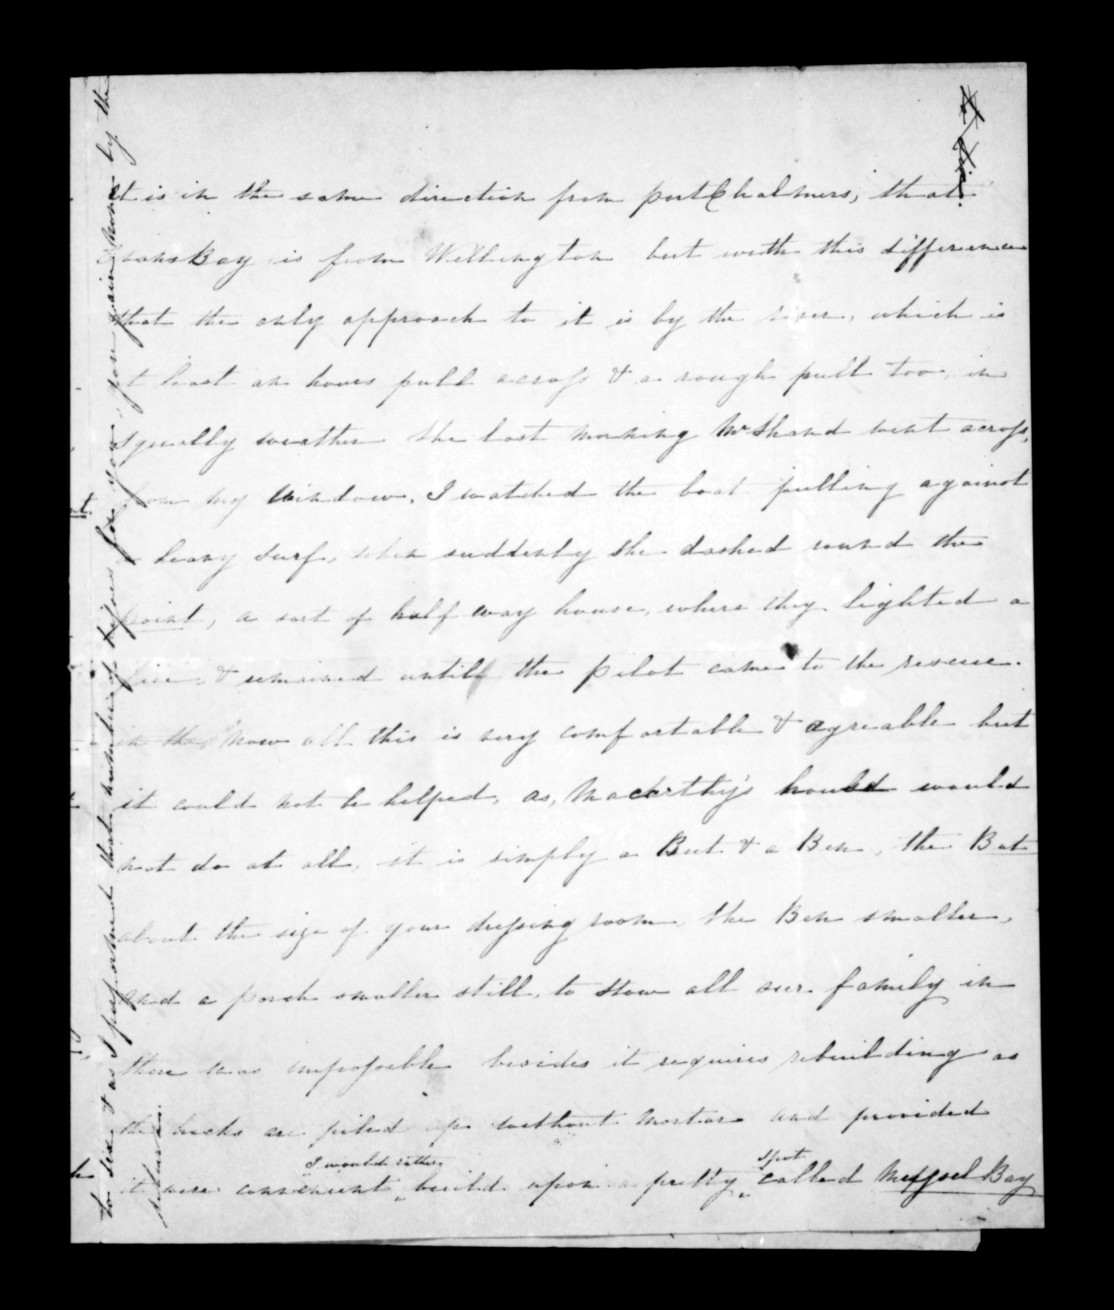 It is in the same direction from port Chalmers, that
Evans Bay is from Wellington but with this difference
that the only approach to it is by the river, which is
at least an hours pull across & a rough pull too, in
squally weather the last morning Mr Shand went across,
from my window, I watched the boat pulling against
a heavy surf, when suddenly she dashed round the
point, a sort of half way house, where they lighted a
fire & remained untill the pilot came to the rescue.
Now all this is very comfortable & agreable but
it could not be helped, as, Macarthy's would
not do at all, it is simply a But & a Ben, the But
about the size of your dressing room, the Ben smaller,
and a porch smaller still, to stow all our family in
there was impossible besides it requires rebuilding as
the bricks are piled up without mortar and provided
it were convenient I would rather build upon a pretty spot called Mussel Bay
to sea & as I preformed that number of before for you, you gain home by the